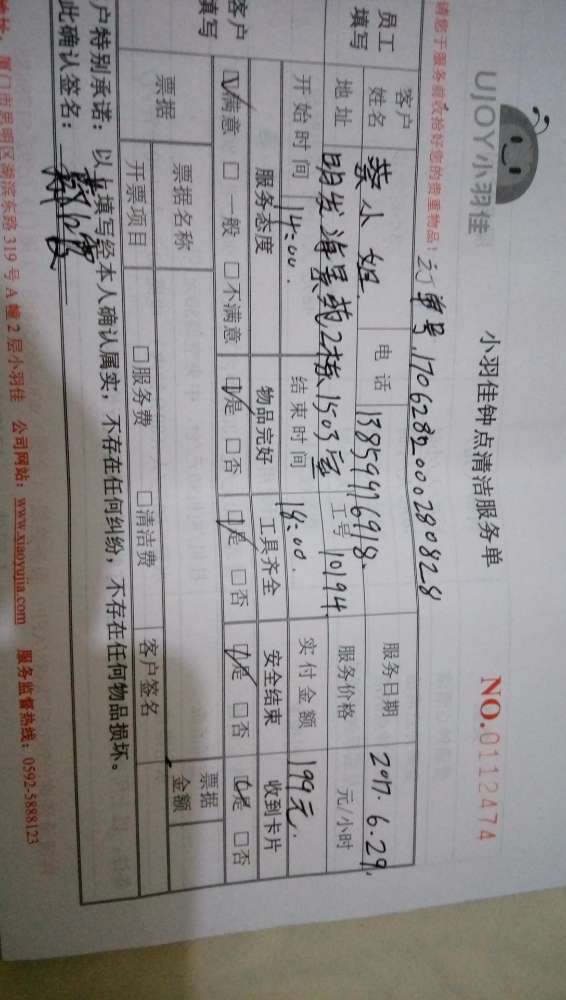 UJOY小羽佳
小羽佳钟点清洁服务单
NO.01112474
请您于服务前收拾好您的贵重物品！
订单号.1706282000290828
员工填写
客户姓名 蔡小姐 电话 13859976918. 服务日期 2017.6.29.
地址 明发海景苑2栋1503室 工号 10194 服务价格 元/小时
开始时间 14:00. 结束时间 18:00. 实付金额 199元.
客户填写
服务态度 物品完好 工具齐全 安全结束 收到卡片
☑满意 □一般 □不满意 ☑是 □否 ☑是 □否 ☑是 □否 ☑是 □否
票据
票据名称 票据金额
开票项目 □服务费 □清洁费 客户签名
户特别承诺：以上填写经本人确认属实，不存在任何纠纷，不存在任何物品损坏。
此确认签名：
地址：厦门市思明区湖滨东路319号A幢2层小羽佳 公司网站：www.xiaoyujia.com 服务监督热线：0592-5888123